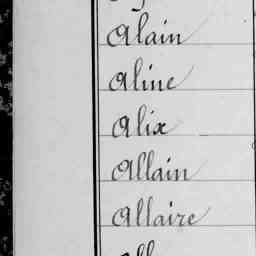 Alain
Aline
Alix
Allain
Allaire